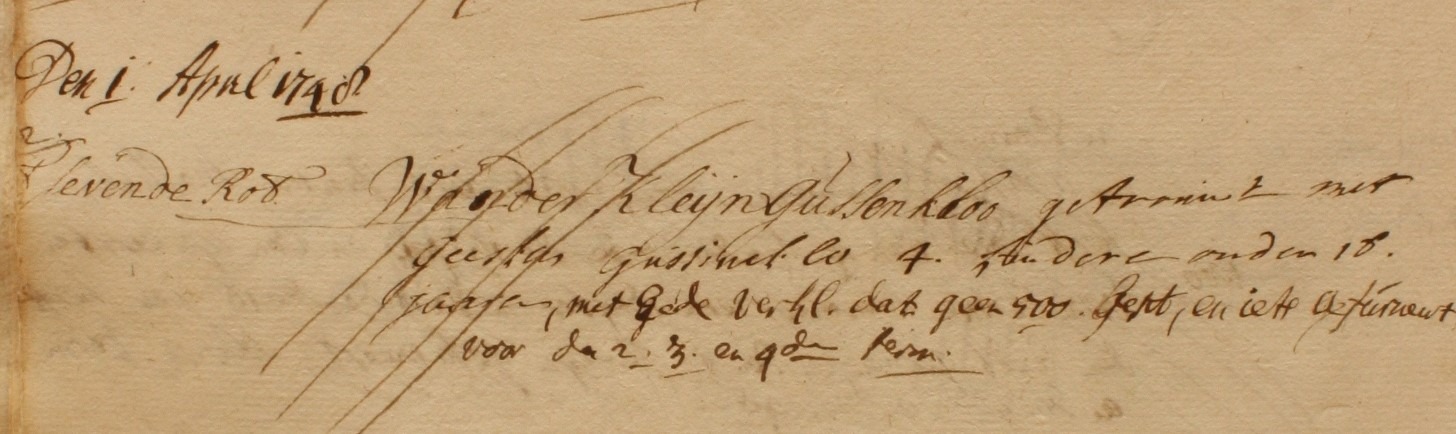 Den 1. April 1748
Sevende Rot Wander Kleijn Gussenkloo getrouwt met
Geesken Gussinck lo 4. kindere onder 16.
jaaren, met Eede verkl. dat geen 500. besit, en iets gefurneert
voor de 2. 3. en 4de term.